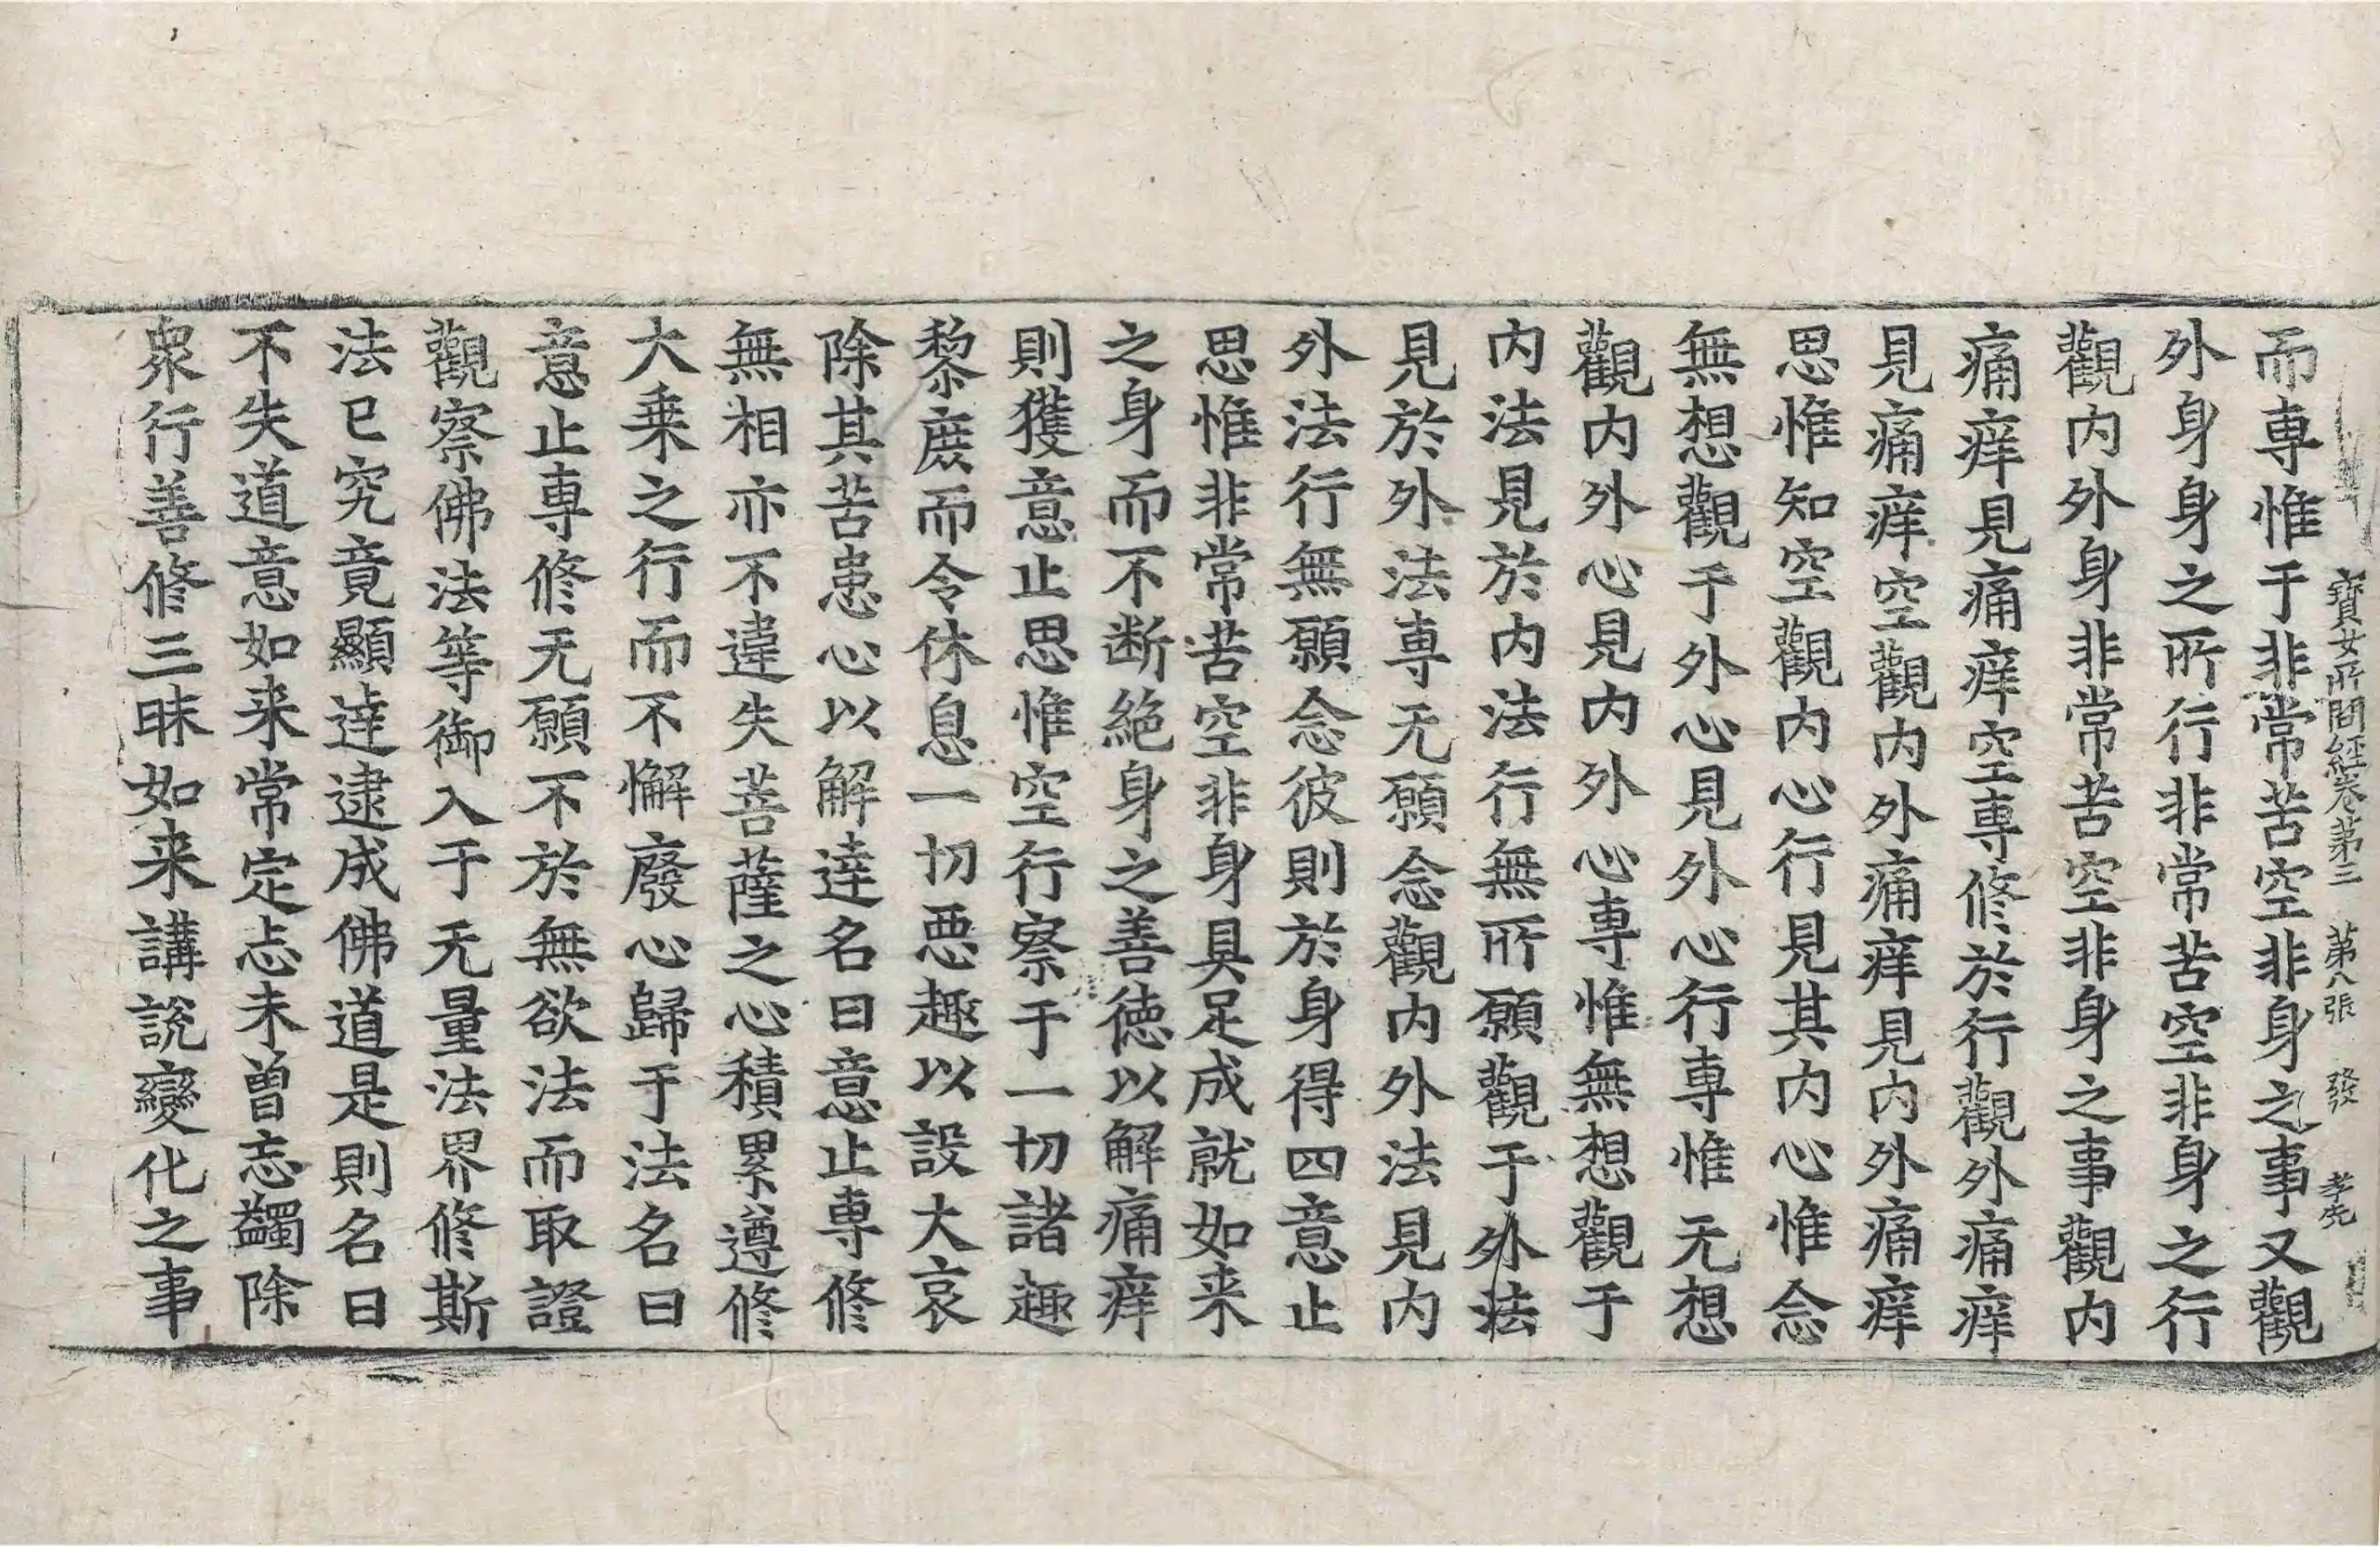 寶女所問經卷第三 第八張 發 孝先
而専惟于非常苦空非身之事又觀
外身身之所行非常苦空非身之行
觀内外身非常苦空非身之事觀内
痛痒見痛痒空専修於行觀外痛痒
見痛痒空觀内外痛痒見内外痛痒
思惟知空觀内心行見其内心惟念
無想觀于外心見外心行専惟无想
觀内外心見内外心専惟無想觀于
内法見於内法行無所願觀于外法
見於外法専无願念觀内外法見内
外法行無願念彼則於身得四意止
思惟非常苦空非身具足成就如来
之身而不断絶身之善徳以解痛痒
則獲意止思惟空行察于一切諸趣
黎庶而令休息一切悪趣以設大哀
除其苦患心以解達名曰意止専修
無相亦不違失菩薩之心積累遵修
大乗之行而不懈廢心歸于法名曰
意止専修无願不於無欲法而取證
觀察佛法等御入于无量法界修斯
法已究竟顯達逮成佛道是則名曰
不失道意如来常定志未曽忘蠲除
衆行善修三昧如来講説變化之事